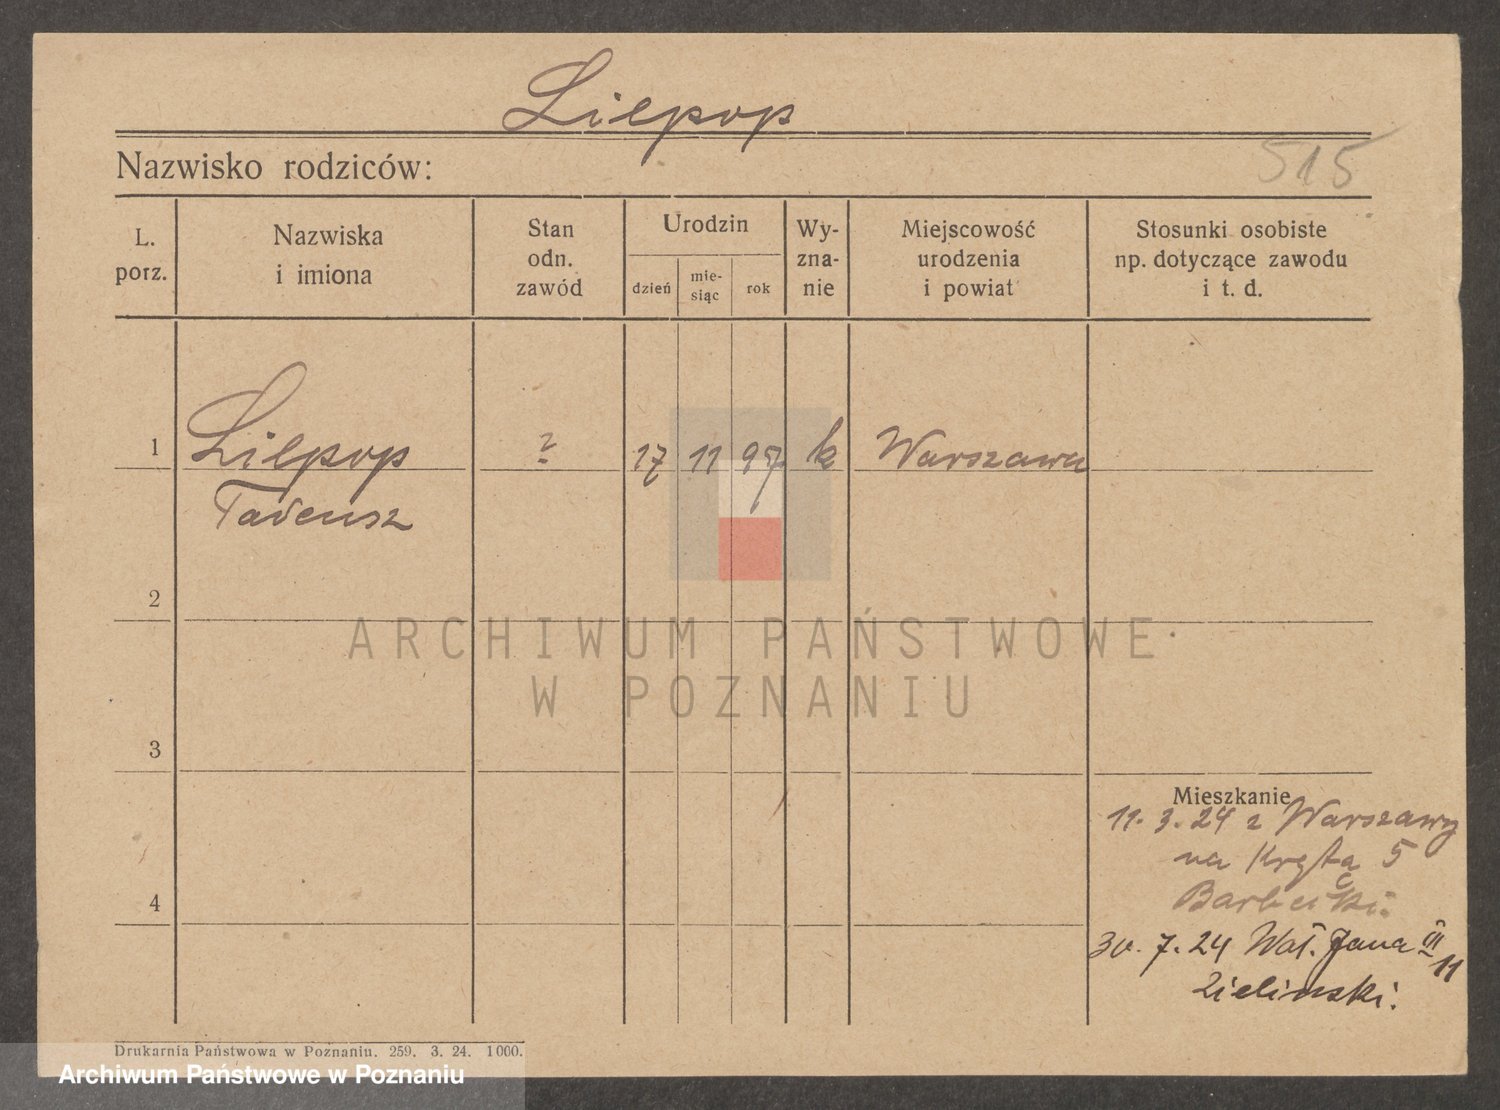 Lilpop
Nazwisko rodziców:
515
L. porz.
Nazwiska i imiona
Stan odn. zawód
Urodzin
dzień
mie-siąc
rok
Wy-zna-nie
Miejscowość urodzenia i powiat
Stosunki osobiste np. dotyczące zawodu i t. d.
1 Lilpop ? 17 11 97 k Warszawa
Tadeusz
2
ARCHIWUM PAŃSTWOWE
W POZNANIU
3
Mieszkanie
11. 3. 24 z Warszawy
na Krętą 5
30. 7. 24 Wał. Jana III 11
Zieliński.
4
Drukarnia Państwowa w Poznaniu. 259. 3. 24. 1000.
Archiwum Państwowe w Poznaniu